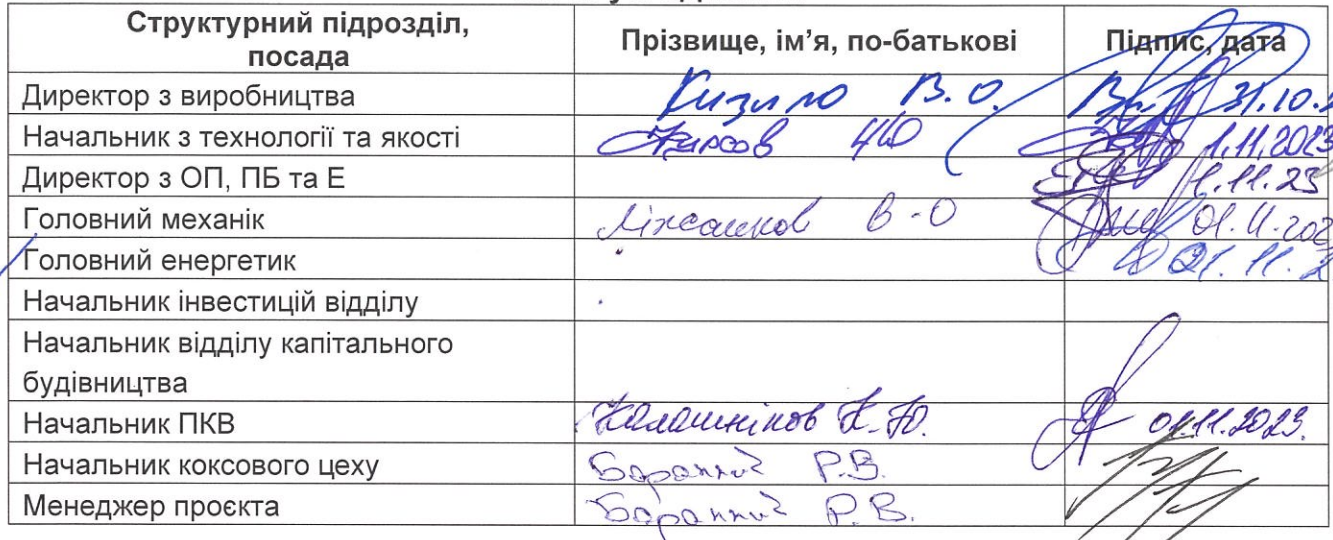 Структурний підрозділ, посада
Прізвище, ім’я, по-батькові
Підпис, дата
Директор з виробництва
В.О. 31.10.
Начальник з технології та якості
1.11.2023
Директор з ОП, ПБ та Е
1.11.23
Головний механік
В-О 01.11.202
Головний енергетик
21.11.2
Начальник інвестицій відділу
Начальник відділу капітального
будівництва
Начальник ПКВ
Калашніков К.Ю. 01.11.2023.
Начальник коксового цеху
Р.В.
Менеджер проєкта
Р.В.